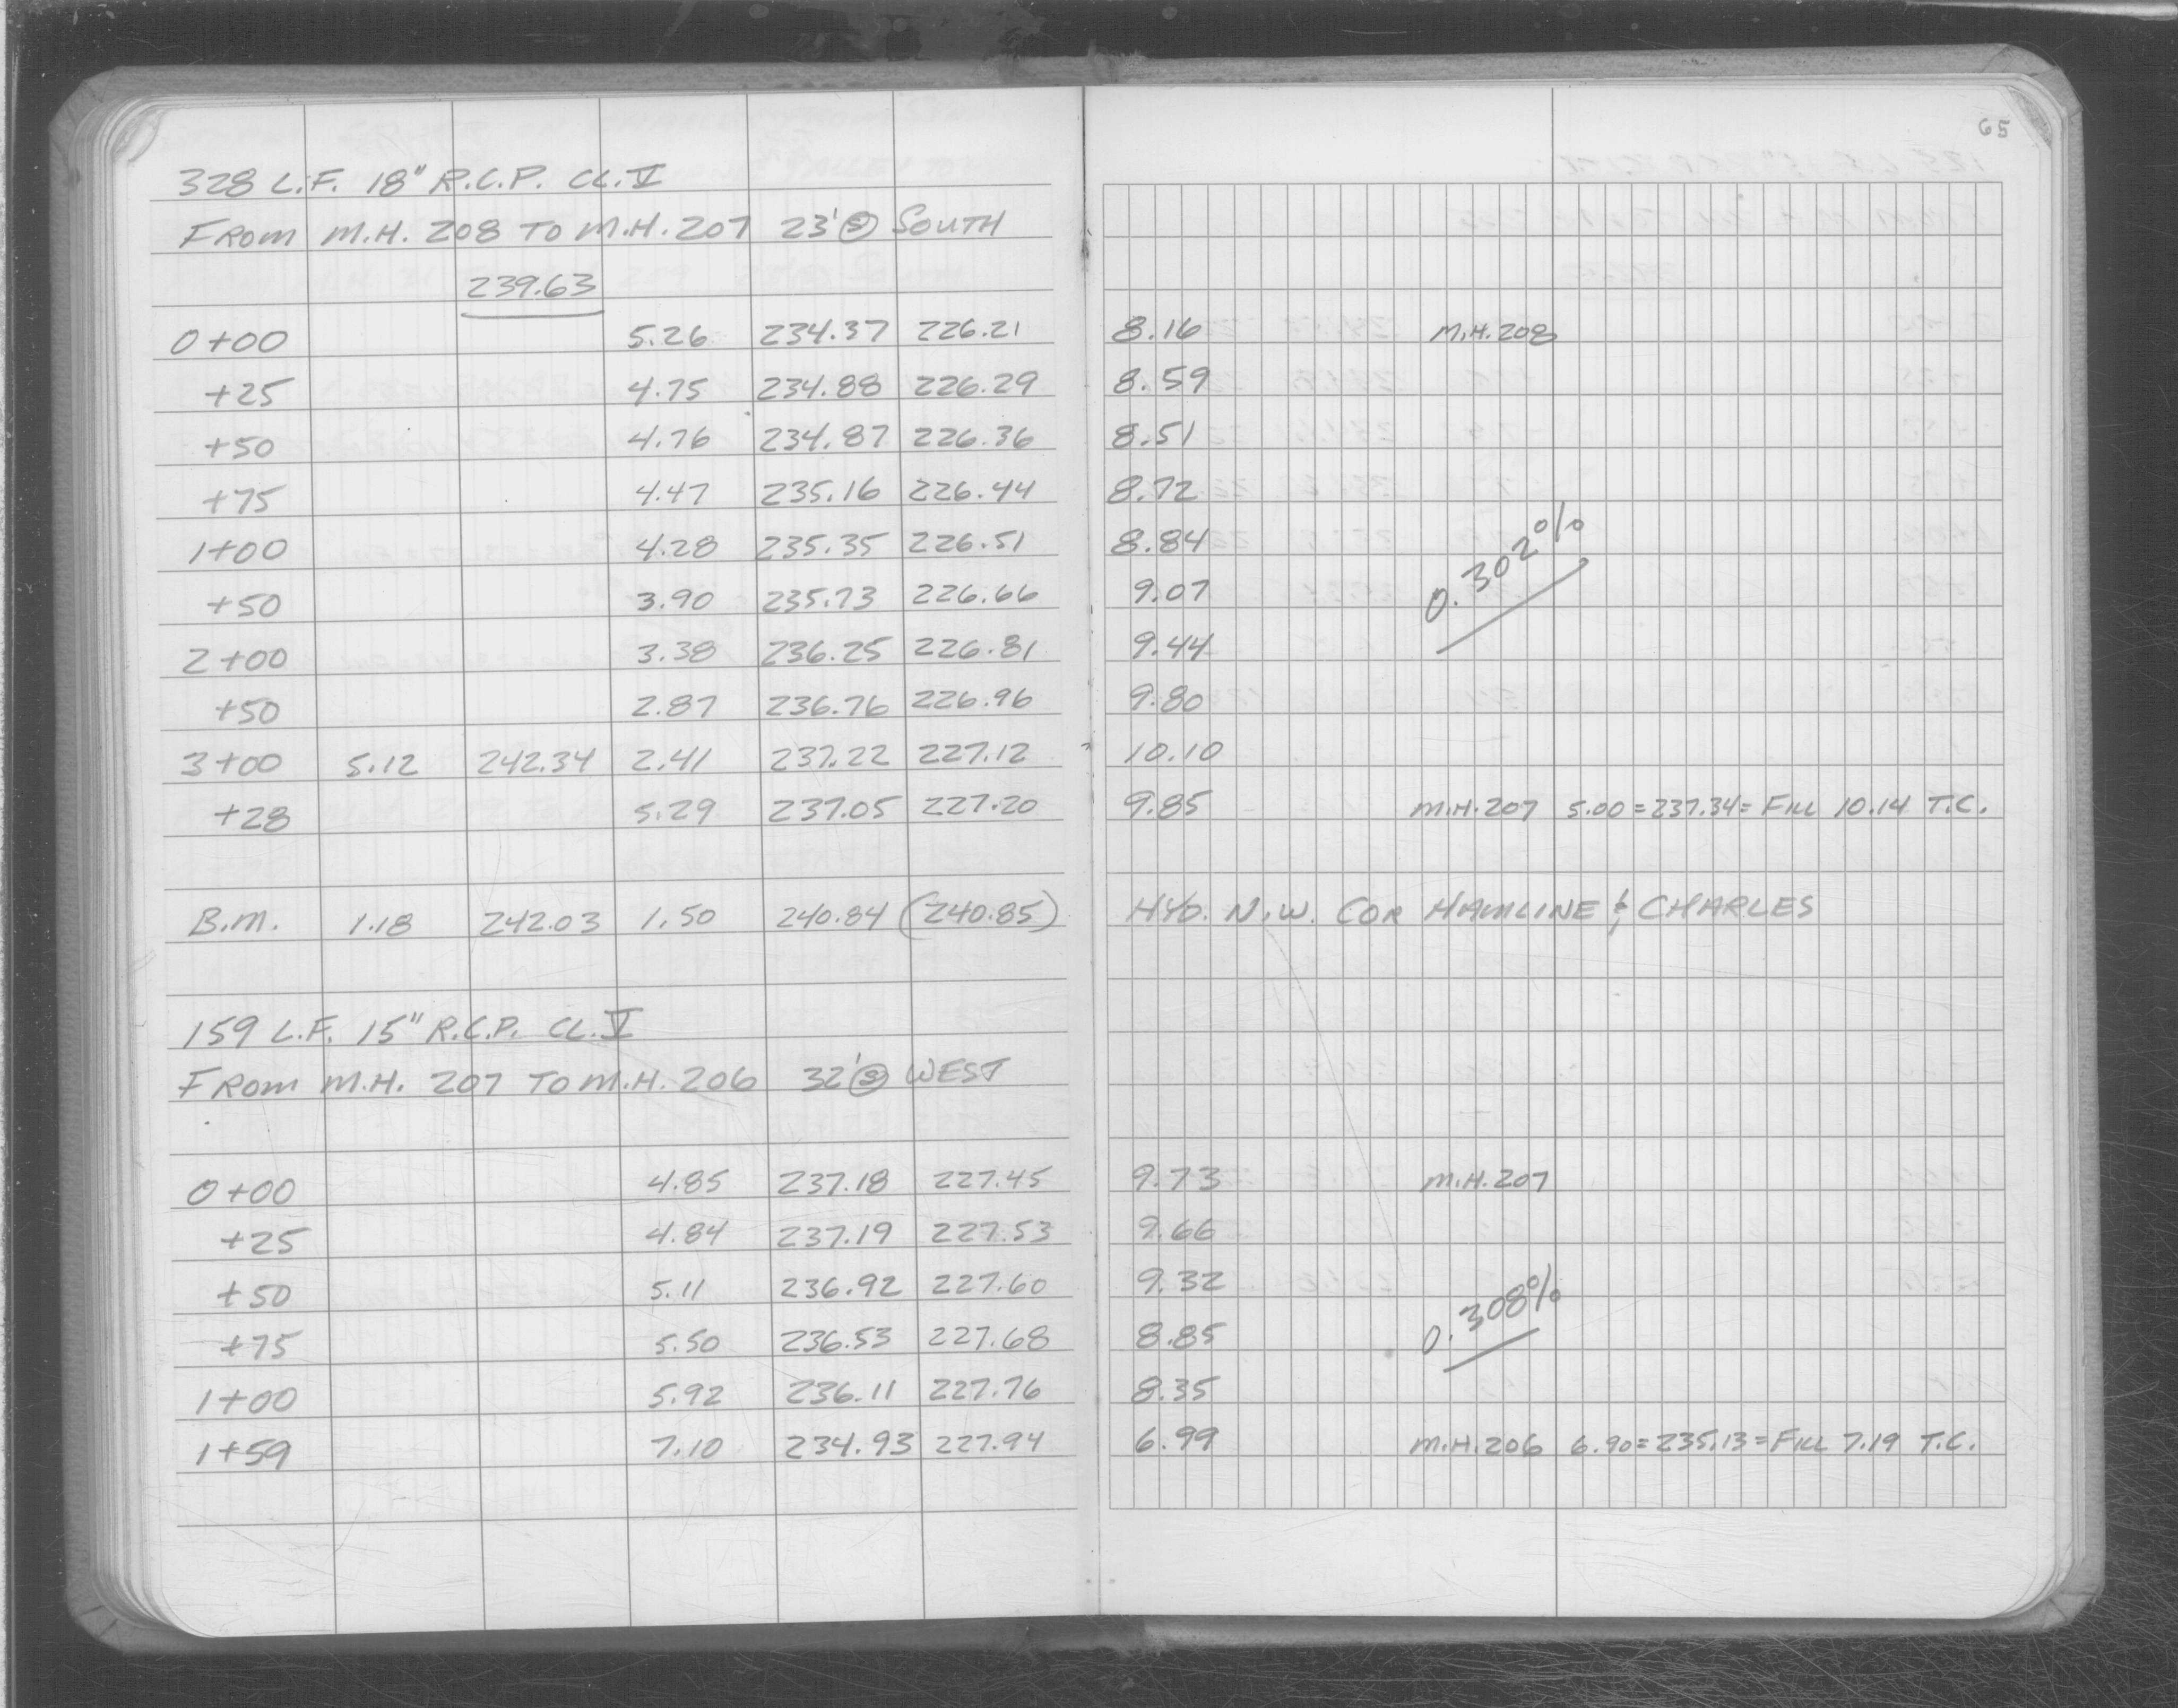 65
328 L.F. 18" R.C.P. CL. V
FROM M.H. 208 TO M.H. 207 23' Ⓢ SOUTH
239.63
0+00 5.26 234.37 226.21 8.16 M.H. 208
+25 4.75 234.88 226.29 8.59
+50 4.76 234.87 226.36 8.51
+75 4.47 235.16 226.44 8.72
1+00 4.28 235.35 226.51 8.84
0.302%
+50 3.90 235.73 226.66 9.07
2+00 3.38 236.25 226.81 9.44
+50 2.87 236.76 226.96 9.80
3+00 5.12 242.34 2.41 237.22 227.12 10.10
+28 5.29 237.05 227.20 9.85 M.H. 207 5.00 = 237.34 = FILL 10.14 T.C.
B.M. 1.18 242.03 1.50 240.84 (240.85) HYD. N.W. COR HAMLINE & CHARLES
159 L.F. 15" R.C.P. CL. V
FROM M.H. 207 TO M.H. 206 32' Ⓢ WEST
0+00 4.85 237.18 227.45 9.73 M.H. 207
+25 4.84 237.19 227.53 9.66
+50 5.11 236.92 227.60 9.32
0.308%
+75 5.50 236.53 227.68 8.85
1+00 5.92 236.11 227.76 8.35
1+59 7.10 234.93 227.94 6.99 M.H. 206 6.90 = 235.13 = FILL 7.19 T.C.